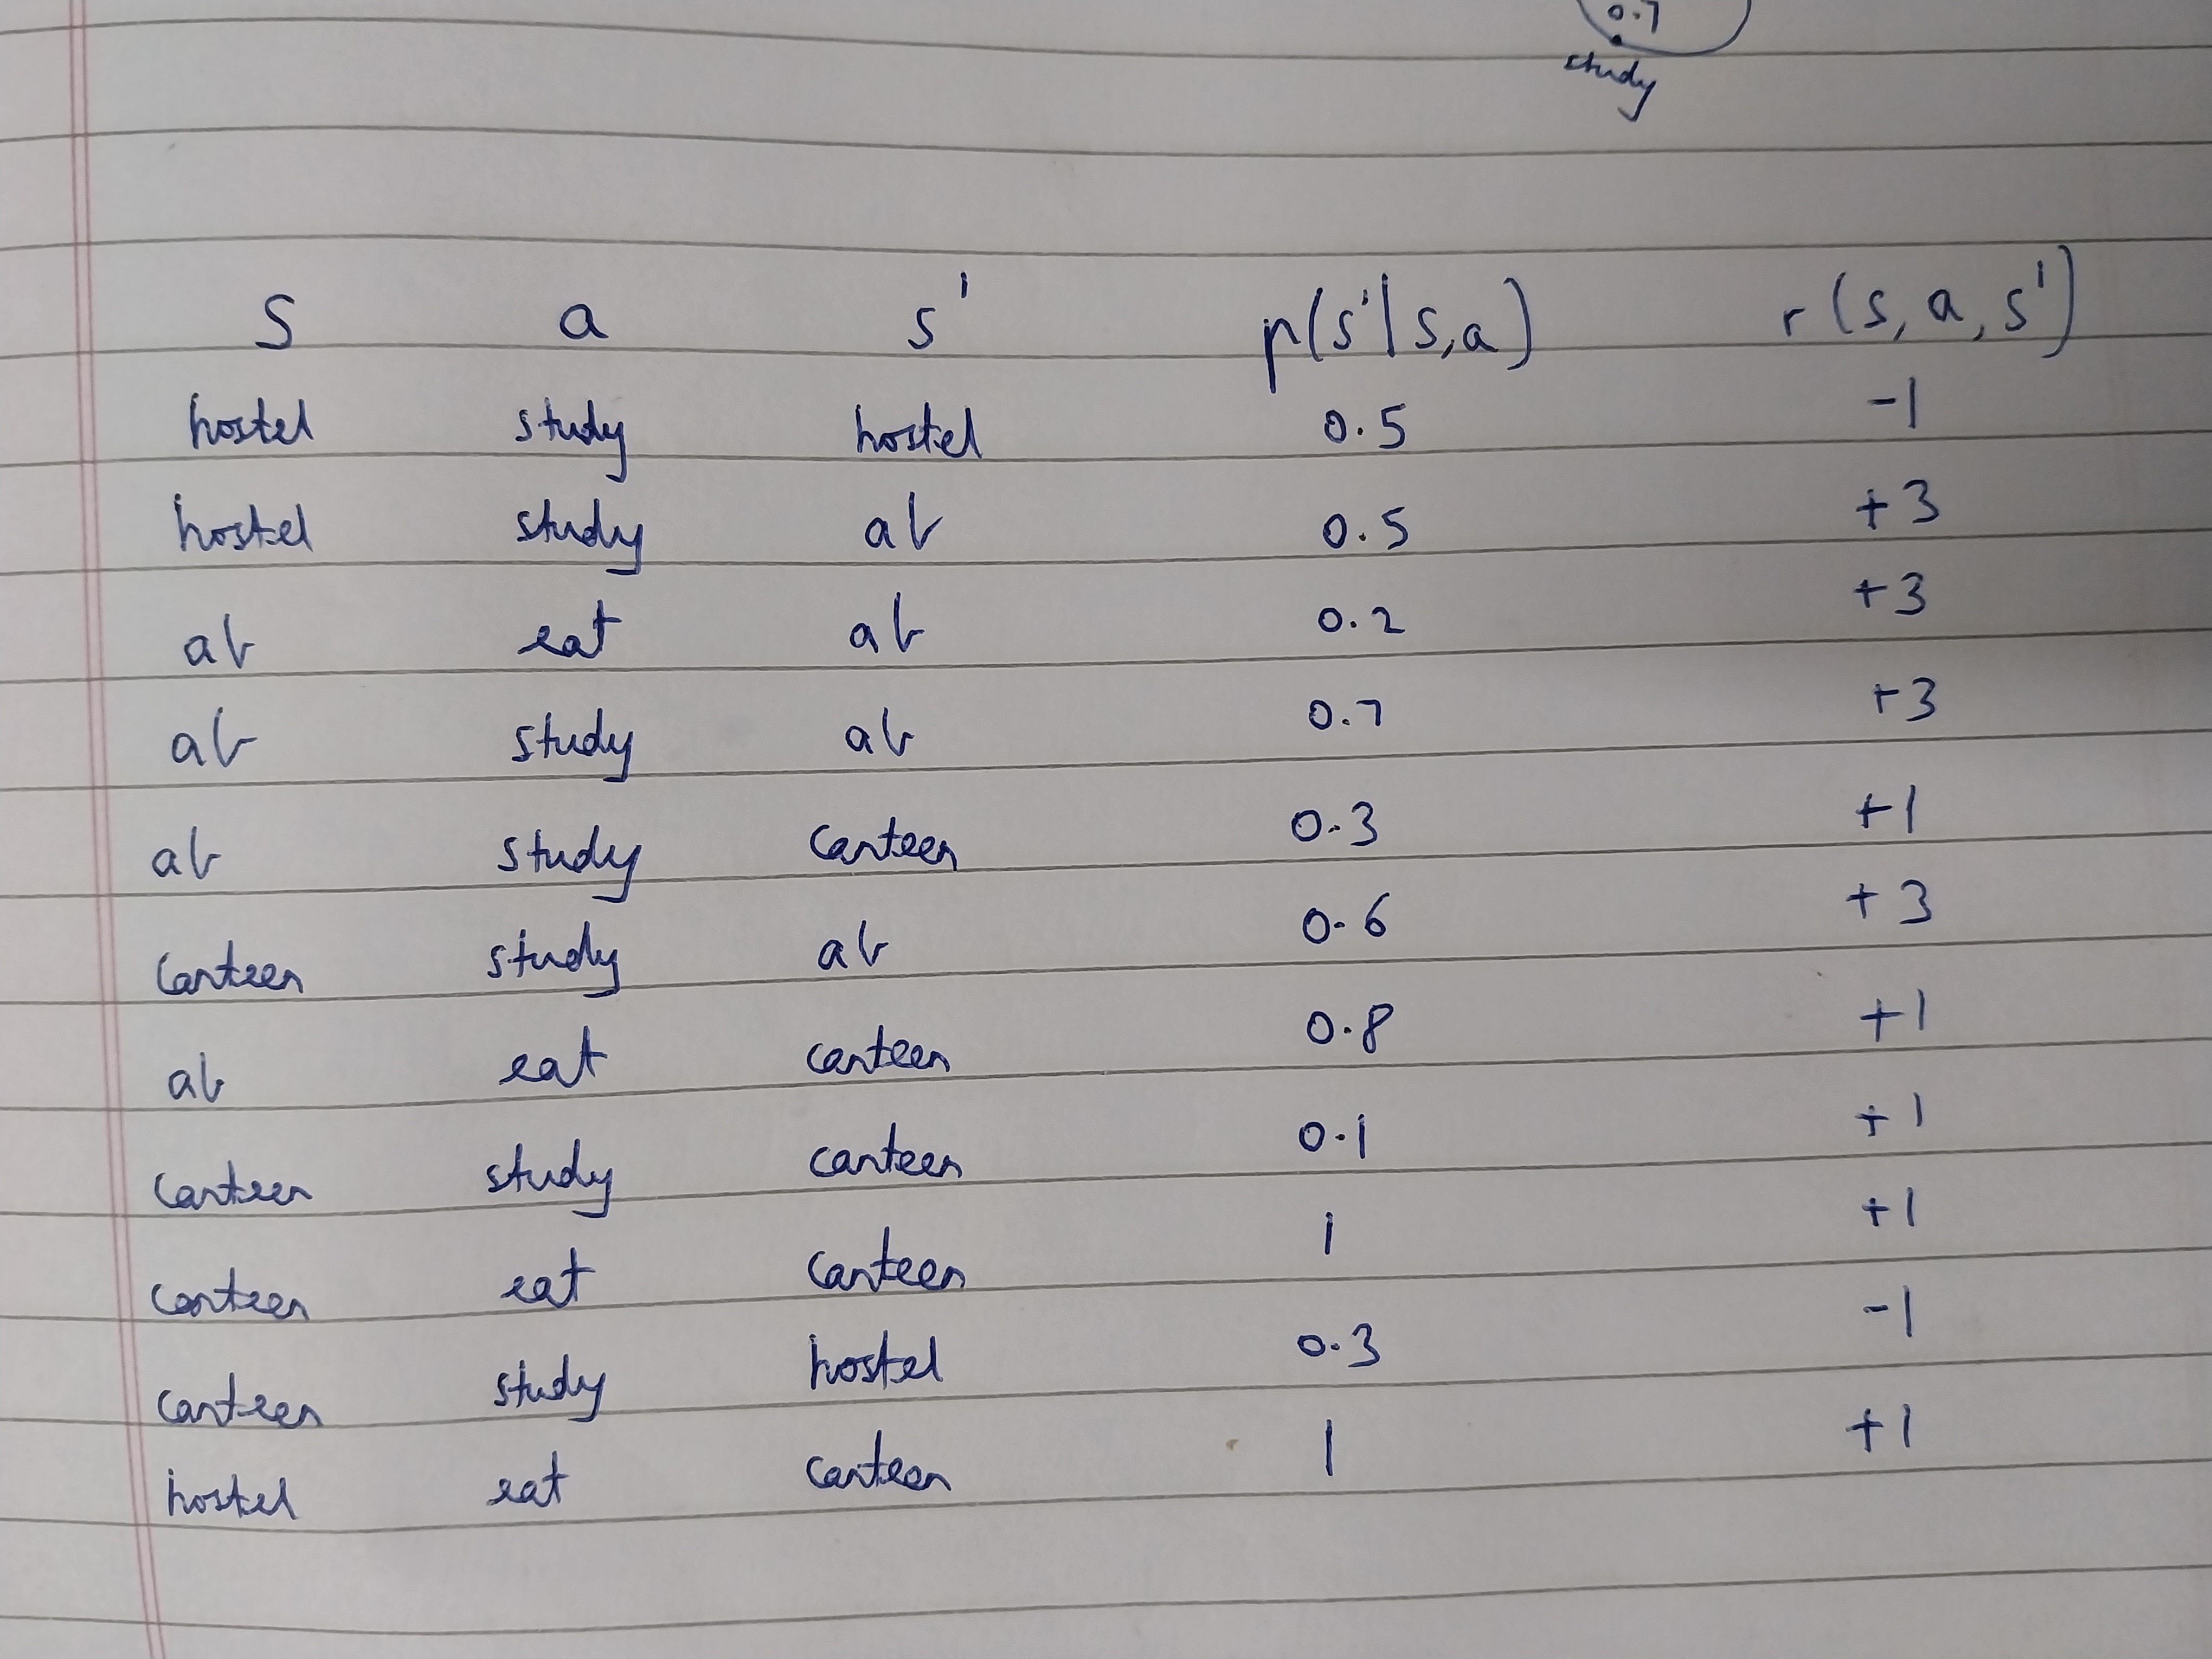 0.7
study
S a s' p(s'|s,a) r(s,a,s')
hostel study hostel 0.5 -1
hostel study ab 0.5 +3
ab eat ab 0.2 +3
ab study ab 0.7 +3
ab study canteen 0.3 +1
canteen study ab 0.6 +3
ab eat canteen 0.8 +1
canteen study canteen 0.1 +1
canteen eat canteen 1 +1
canteen study hostel 0.3 -1
hostel eat canteen 1 +1